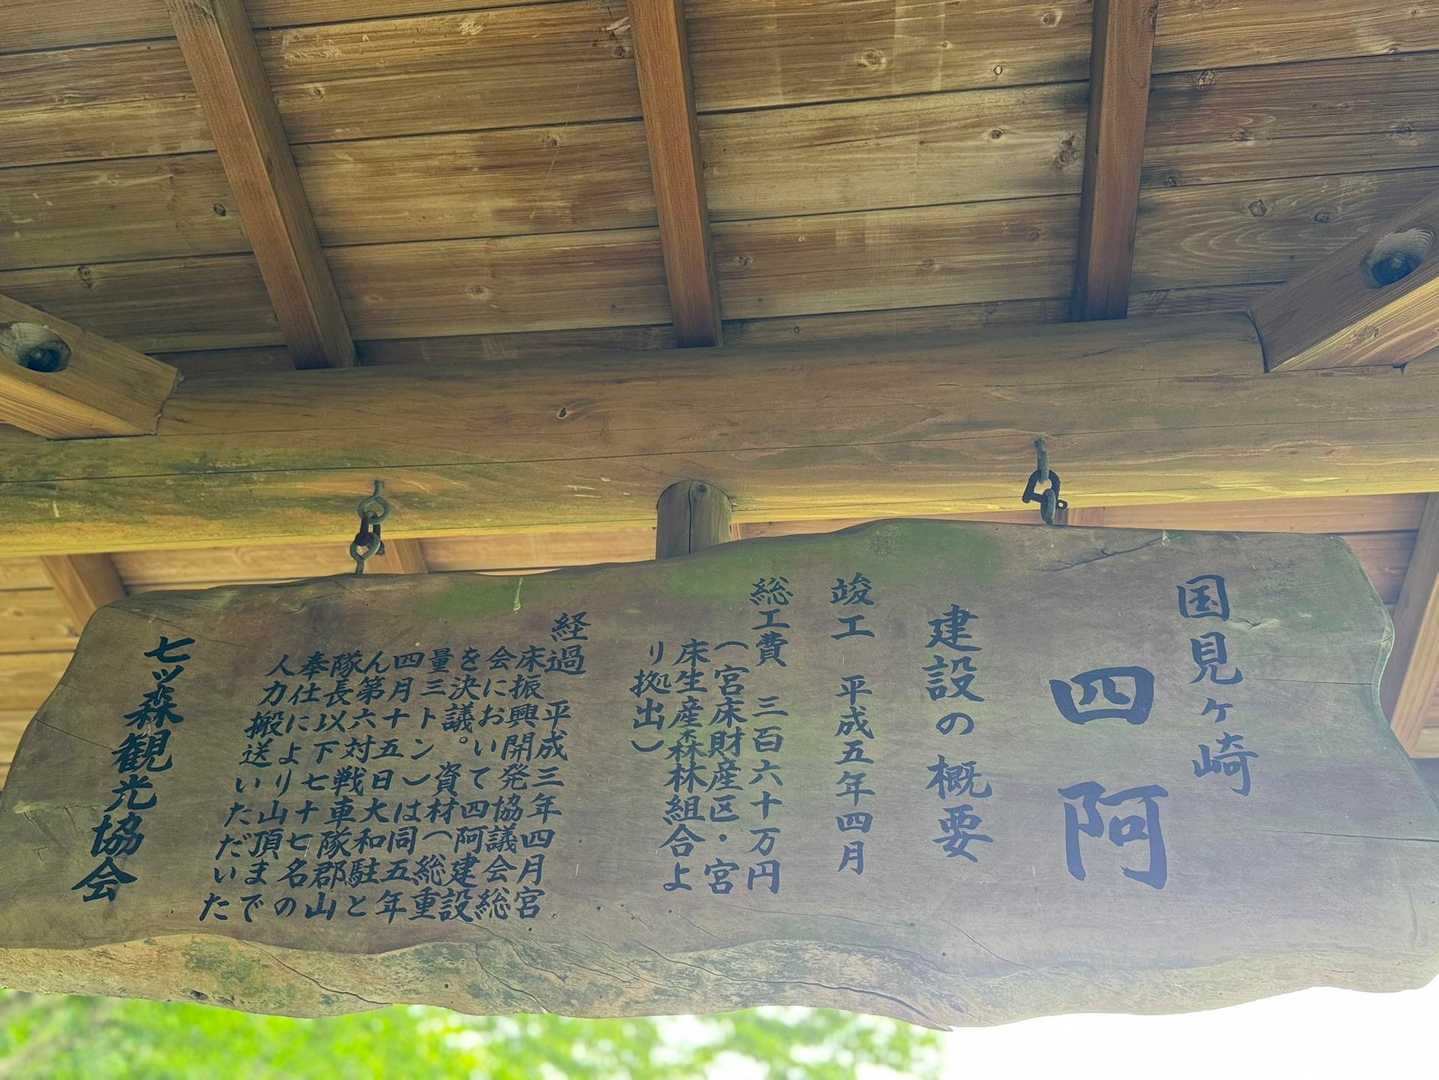 国見ヶ崎
四阿
建設の概要
竣工 平成五年四月
総工費 三百六十万円
(宮床財産区・宮
床生産森林組合よ
り拠出)
経過 平成三年四月宮
床振興開発協議会総
会において四阿建設
を決議。資材(総重
量三トン)は同五年
四月十五日大和駐と
ん第六対戦車隊郡山
隊長以下七十七名の
奉仕により山頂まで
人力搬送いただいた
七ツ森観光協会